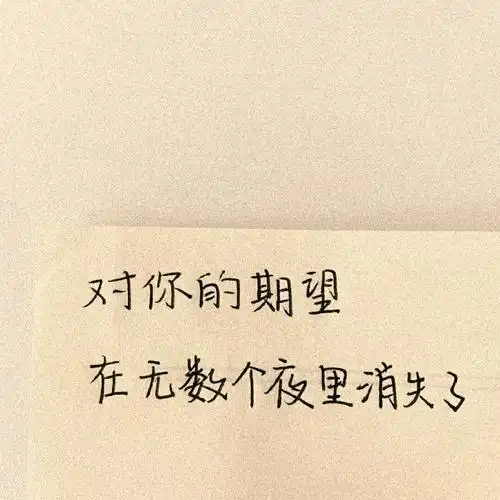 对你的期望
在无数个夜里消失了